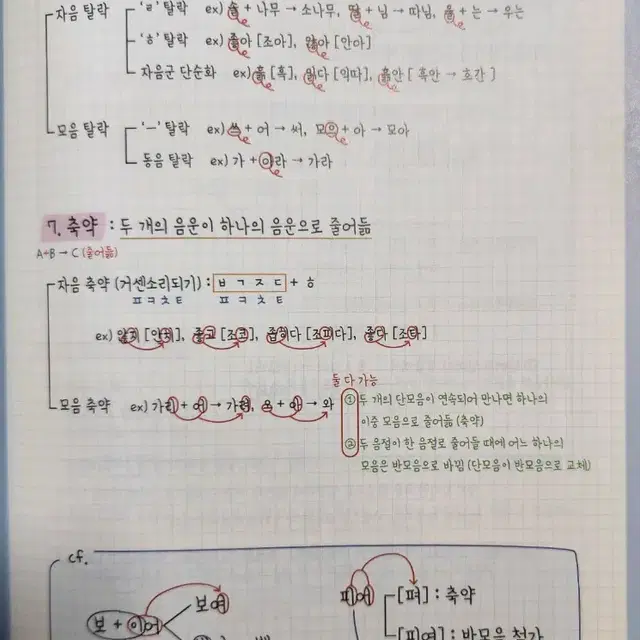 자음 탈락 'ㄹ' 탈락 ex) 솔 + 나무 → 소나무, 딸 + 님 → 따님, 울 + 는 → 우는
'ㅎ' 탈락 ex) 좋아 [조아], 않아 [안아]
자음군 단순화 ex) 흙 [흑], 읽다 [익따], 흙안 [ 흑안 → 흐간 ]
모음 탈락 'ㅡ' 탈락 ex) 쓰 + 어 → 써, 모으 + 아 → 모아
동음 탈락 ex) 가 + 아라 → 가라
7. 축약 : 두 개의 음운이 하나의 음운으로 줄어듦
A+B → C (줄어듦)
자음 축약 (거센소리되기) : ㅂ ㄱ ㅈ ㄷ + ㅎ
ㅍ ㅋ ㅊ ㅌ ㅍ ㅋ ㅊ ㅌ
ex) [안치], 좋고 [조코], 좁히다 [조피다], 좋다 [조타]
둘 다 가능
모음 축약 ex) 가리 + 어 → 가려, 오 + 아 → 와
① 두 개의 단모음이 연속되어 만나면 하나의
이중 모음으로 줄어듦 (축약)
② 두 음절이 한 음절로 줄어들 때에 어느 하나의
모음은 반모음으로 바뀜 (단모음이 반모음으로 교체)
cf.
보여
피어 [펴] : 축약
보 + 이어
[피여] : 반모음 첨가